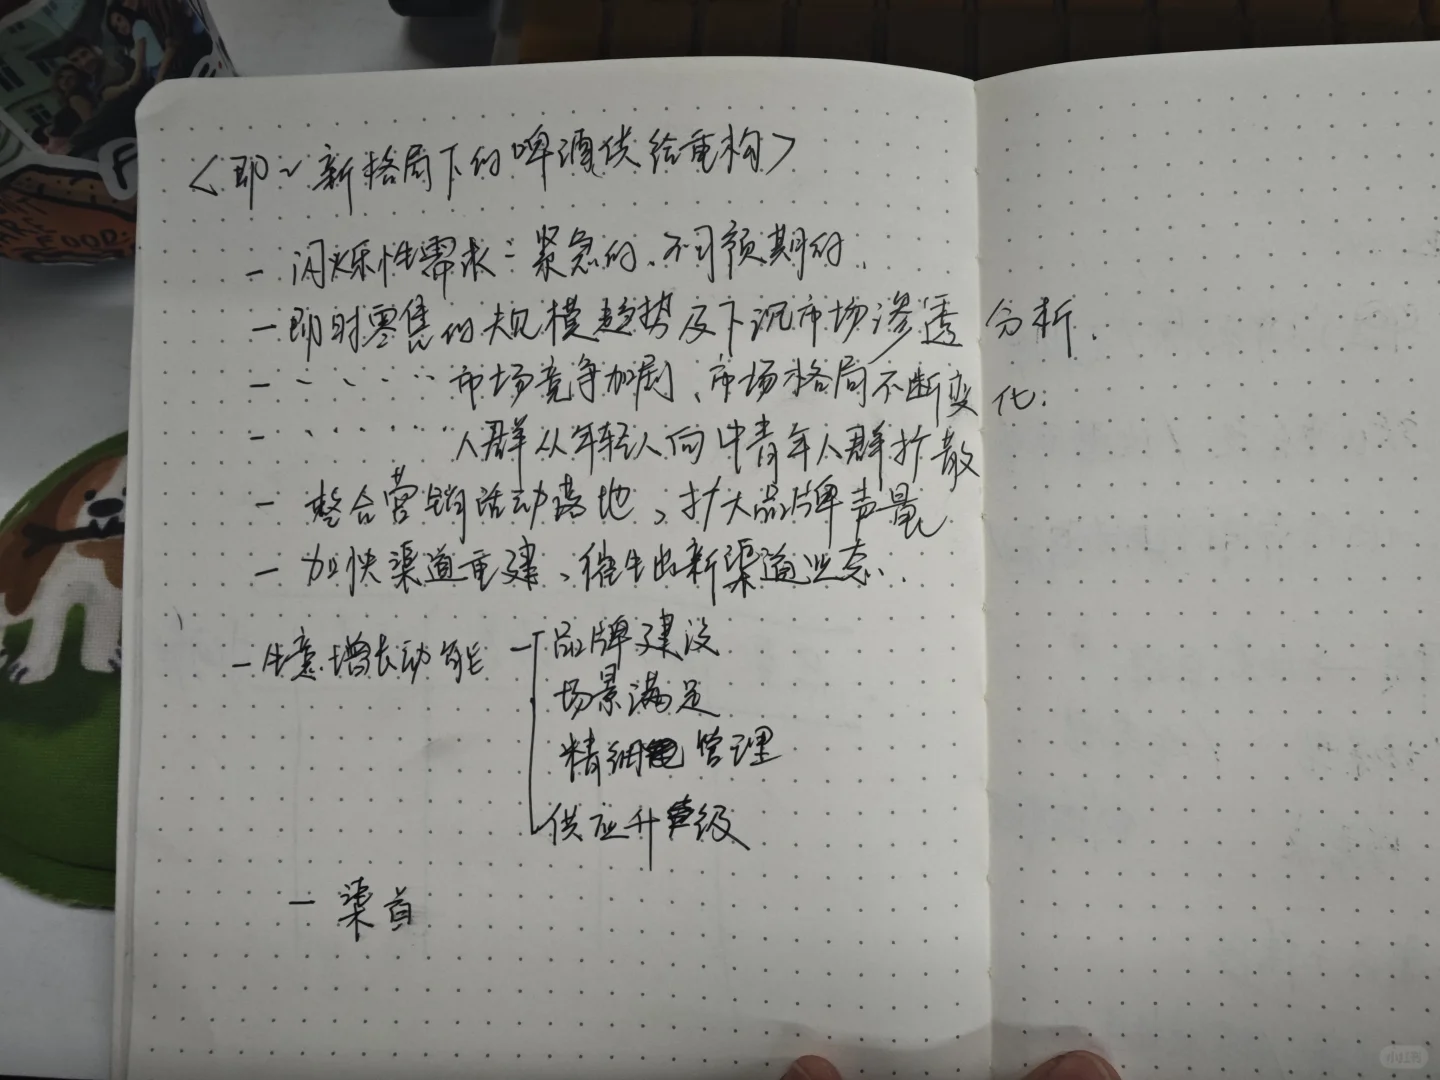 <即~新格局下的啤酒供给重构>
- 闪烁性需求：紧急的、不可预期的.
- 即时零售的规模趋势及下沉市场渗透分析.
- 、、、、.. 市场竞争加剧、市场格局不断变化.
- 、、..... 人群从年轻人向中青年人群扩散
- 整合营销活动落地、扩大品牌声量
- 加快渠道重建、催生出新渠道业态.
- 生意增长动能 - 品牌建设
场景满足
精细 管理
供应升级
- 渠首
FOOD
小红书